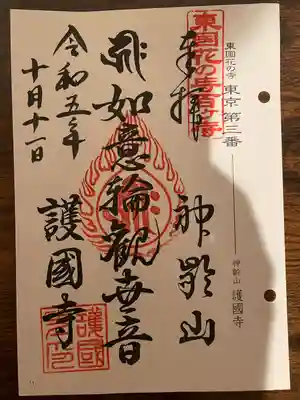 東国花の寺 東京 第三番
神齢山 護國寺
東国花の寺百ケ寺
奉拝
神齢山
如意輪觀世音
護國寺
令和五年
十月十一日
護國